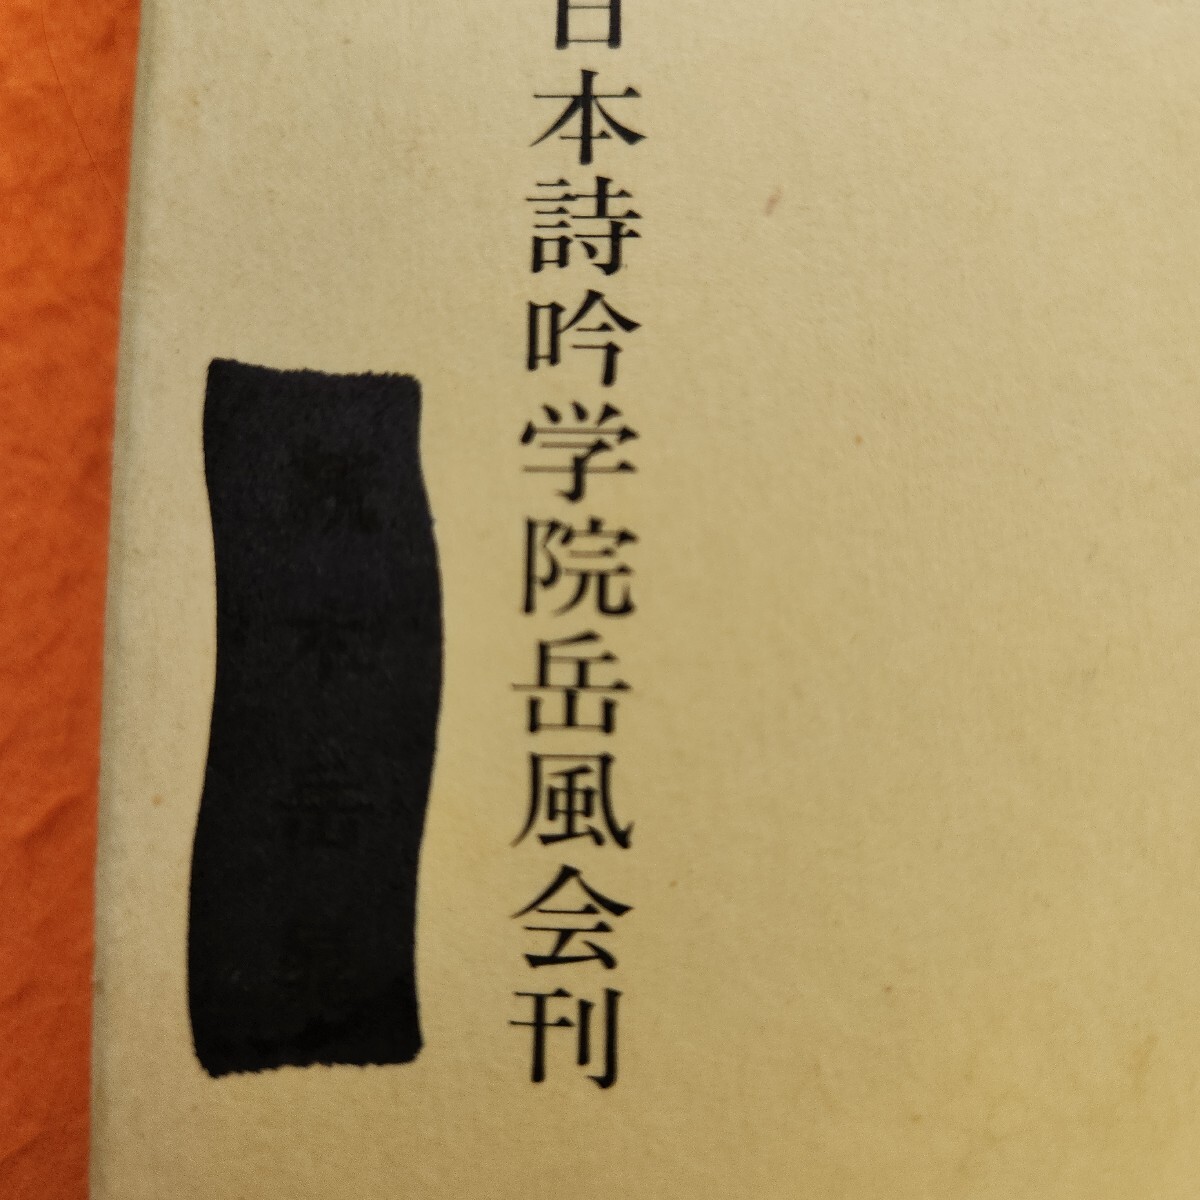 日本詩吟学院岳風会刊